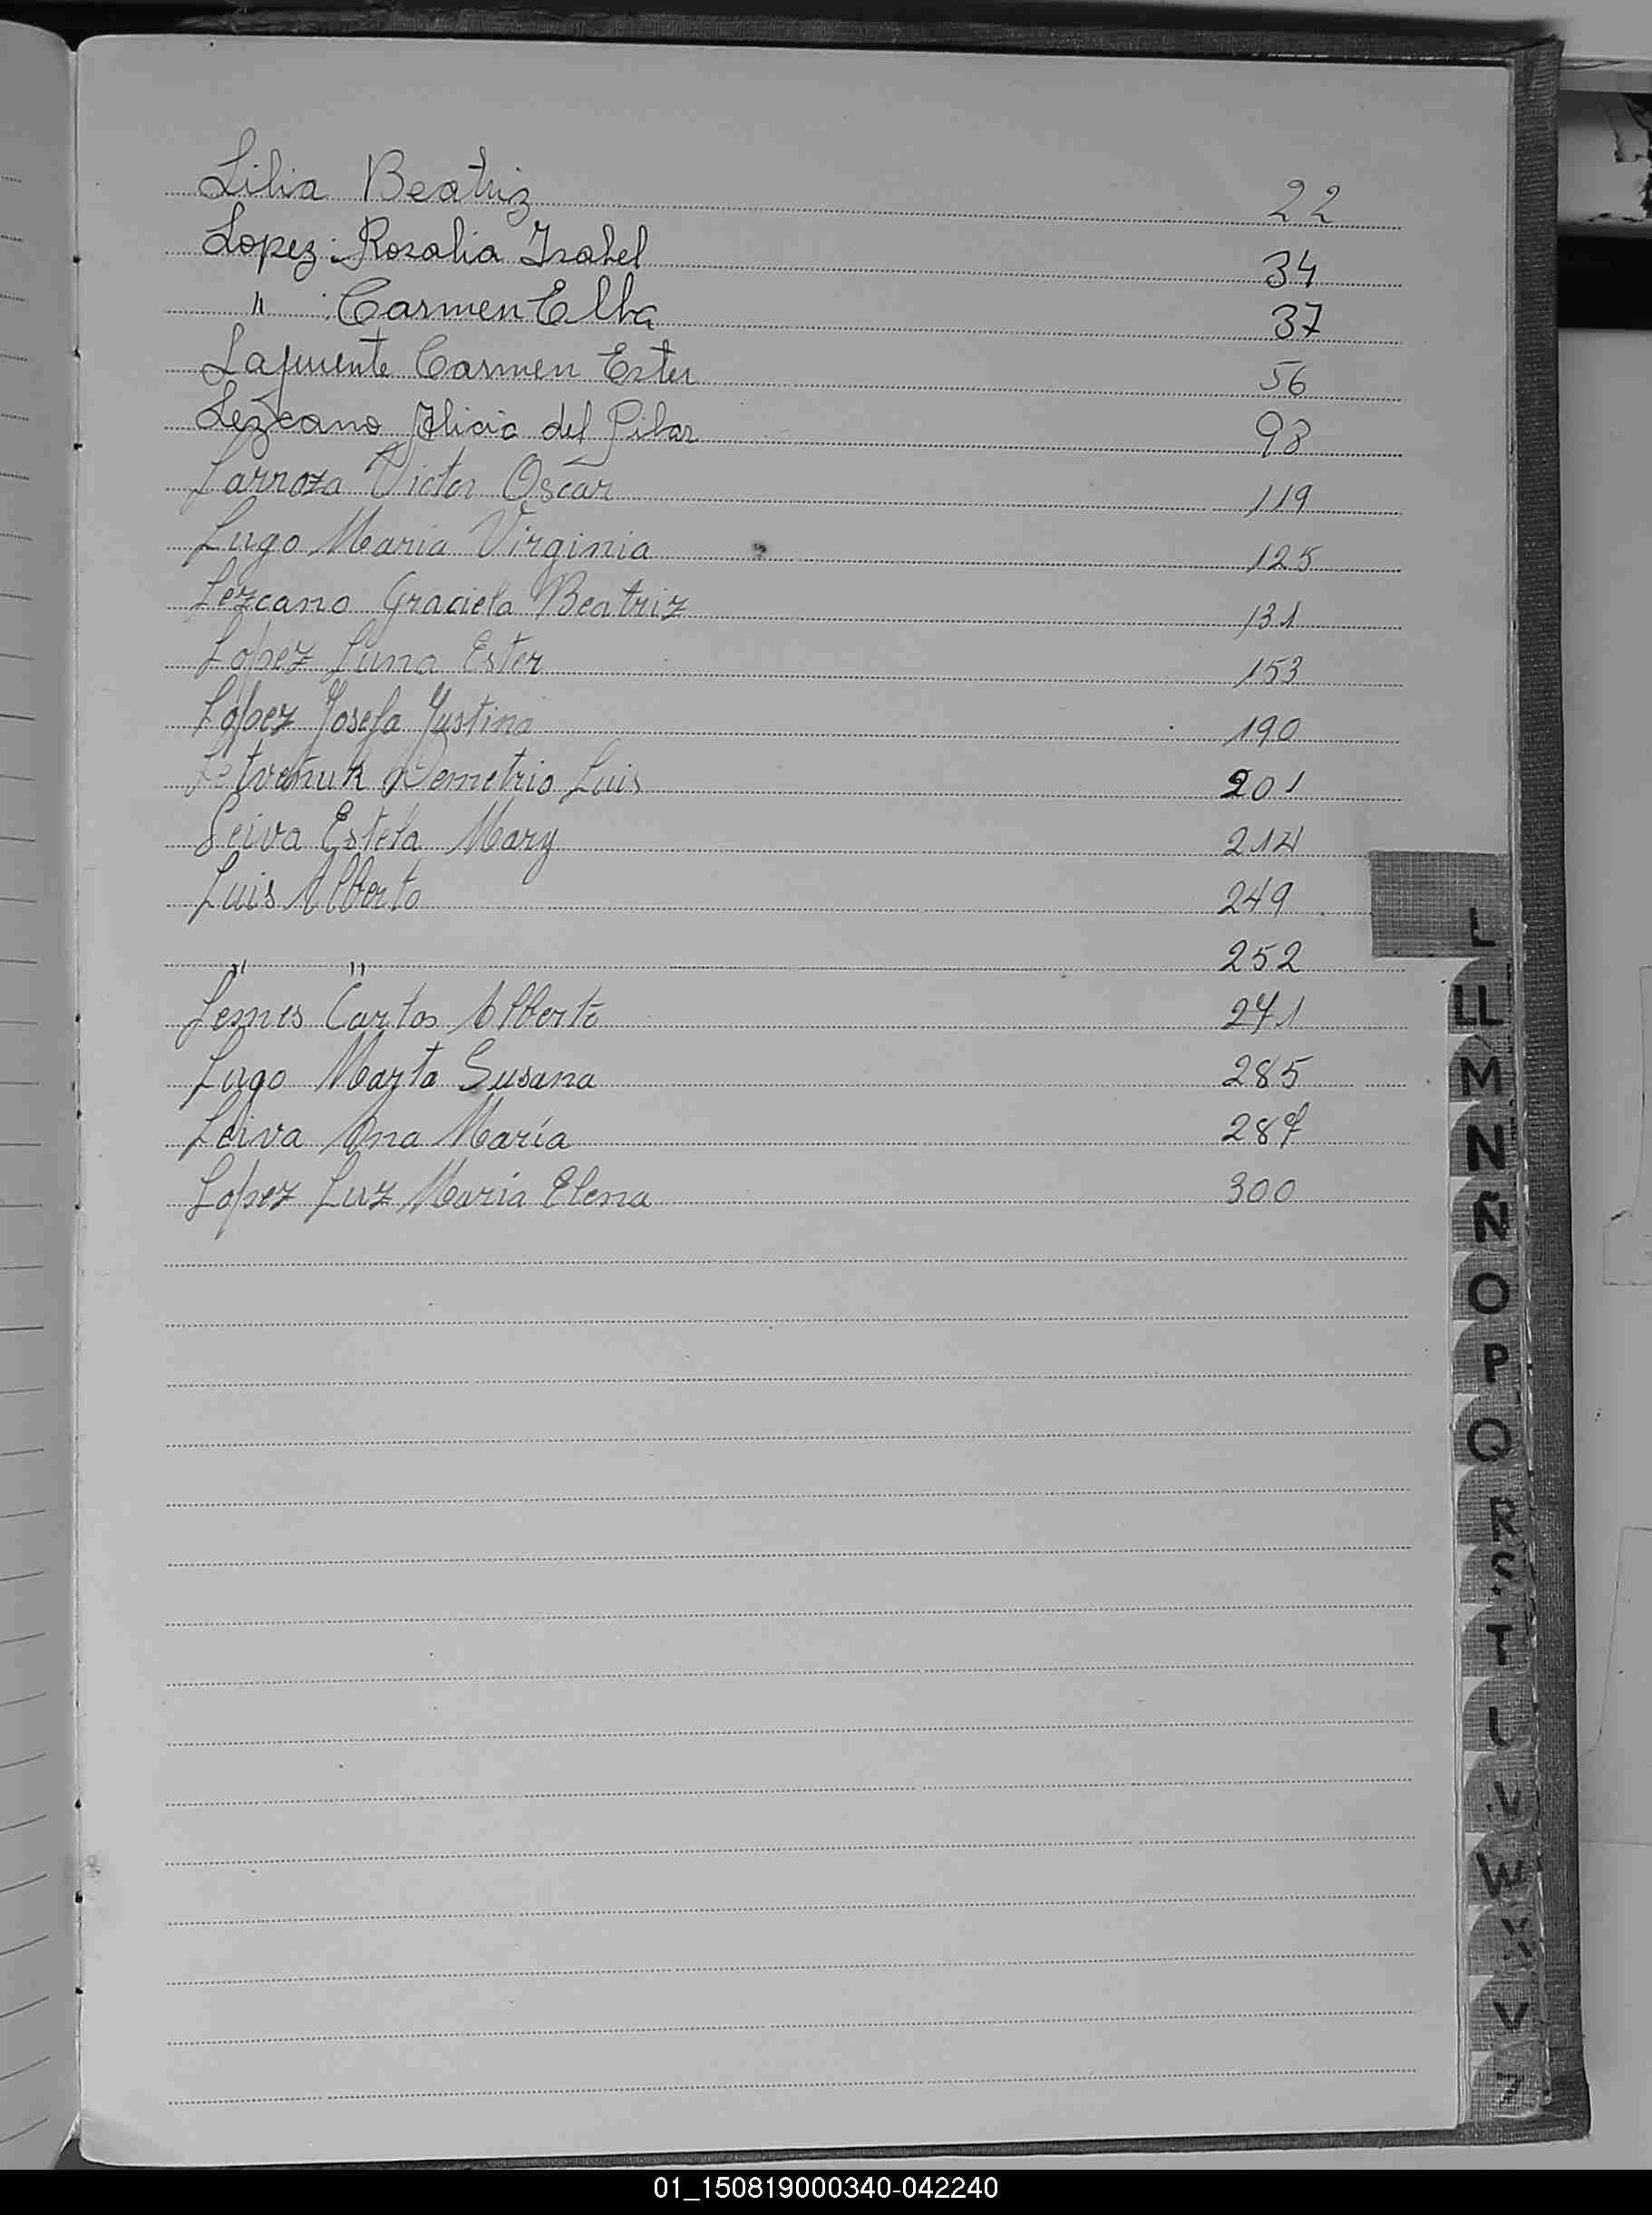 Lilia Beatriz 22
Lopez: Rosalia Isabel 34
" : Carmen Elba 37
Lafuente Carmen Ester 56
Lezcano Alicia del Pilar 98
Larroza Victor Oscar 119
Lugo Maria Virginia 125
Lezcano Graciela Beatriz 131
Lopez Luna Ester 153
Lopez Josefa Justina 190
Demetrio Luis 201
Leiva Estela Mary 214
Luis Alberto 249
" " 252
Lemes Carlos Alberto 271
Lugo Marta Susana 285
Leiva Ana María 287
Lopez Luz María Elena 300
L
LL
M
N
Ñ
O
P
Q
R
S
T
U
V
W
X
Y
Z
01_150819000340-042240